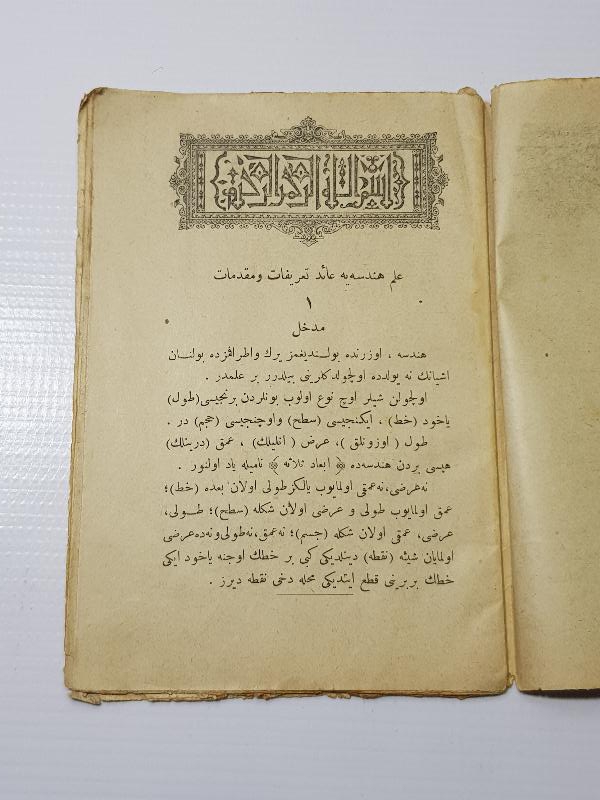 بسم الله الرحمن الرحيم
علم هندسه‌یه عائد تعریفات و مقدمات
١
مدخل
هندسه ، اوزرنده بولندیغمز یرك و اطرافمزده بولنان
اشیانك نه یولده اولچولدكلرینی بیلدرر بر علمدر .
اولچولن شیلر اوچ نوع اولوب بونلردن برنجیسی (طول)
یاخود (خط) ، ایكنجیسی (سطح) و اوچنجیسی (حجم) در .
طول ( اوزونلق )، عرض ( اكلیلك) ، عمق (درینلك)
هپسی بردن هندسه‌ده ﴿ ابعاد ثلاثه ﴾ نامیله یاد اولنور .
نه عرضی، نه عمقی اولمایوب یالكز طولی اولان بعده (خط)؛
عمق اولمایوب طولی و عرضی اولان شكله (سطح)؛ طولی،
عرضی، عمقی اولان شكله (جسم)؛ نه عمق، نه طولی و نه ده عرضی
اولمایان شیئه (نقطه) دینلدیكی كبی بر خطك اوجنه یاخود ایكی
خطك بربرینی قطع ایتدیكی محله دخی نقطه دیرز .